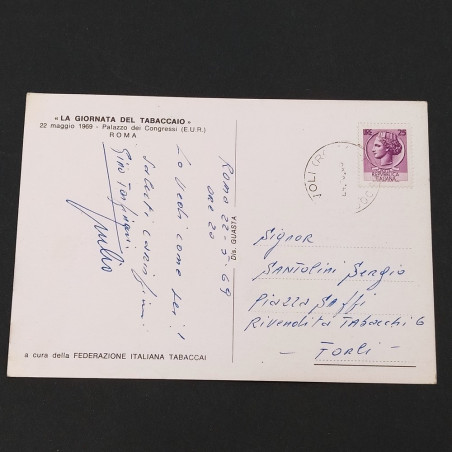 « LA GIORNATA DEL TABACCAIO »
22 maggio 1969 - Palazzo dei Congressi (E.U.R.)
ROMA
Roma 22-5-69
ore 20
Lo vedi come sei!
Saluti carissimi
Gino
Giulio
Dis. GUASTA
a cura della FEDERAZIONE ITALIANA TABACCAI
25
REPUBBLICA
ITALIANA
Signor
Santolini Sergio
Piazza Saffi
Rivendita Tabacchi 6
- Forlì -